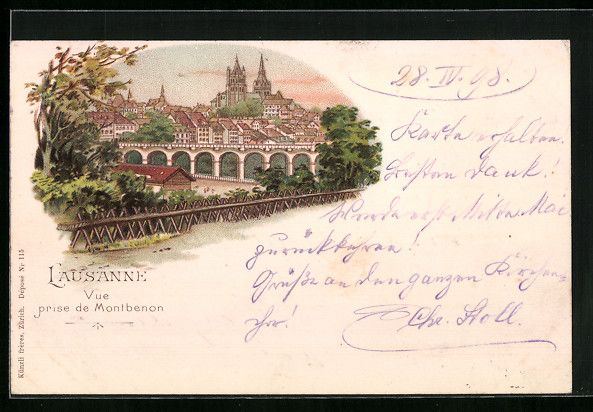 28. IV. 98.
Karte erhalten.
Besten Dank!
Werde erst Mitte Mai
zurückkehren!
Grüße an den ganzen Kirchen-
chor!
Chr. Stoll.
LAUSANNE
Vue
prise de Montbenon
Künzli frères, Zürich. Déposé Nr 115